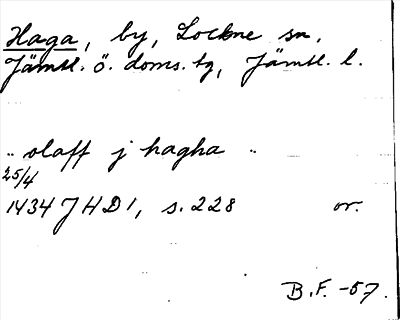 Haga, by, Lockne sn,
Jämtl. ö. doms. tg, Jämtl. l.
.. olaff j hagha ..
25/4
1434 JHD 1, s. 228 or.
B.F. -57.